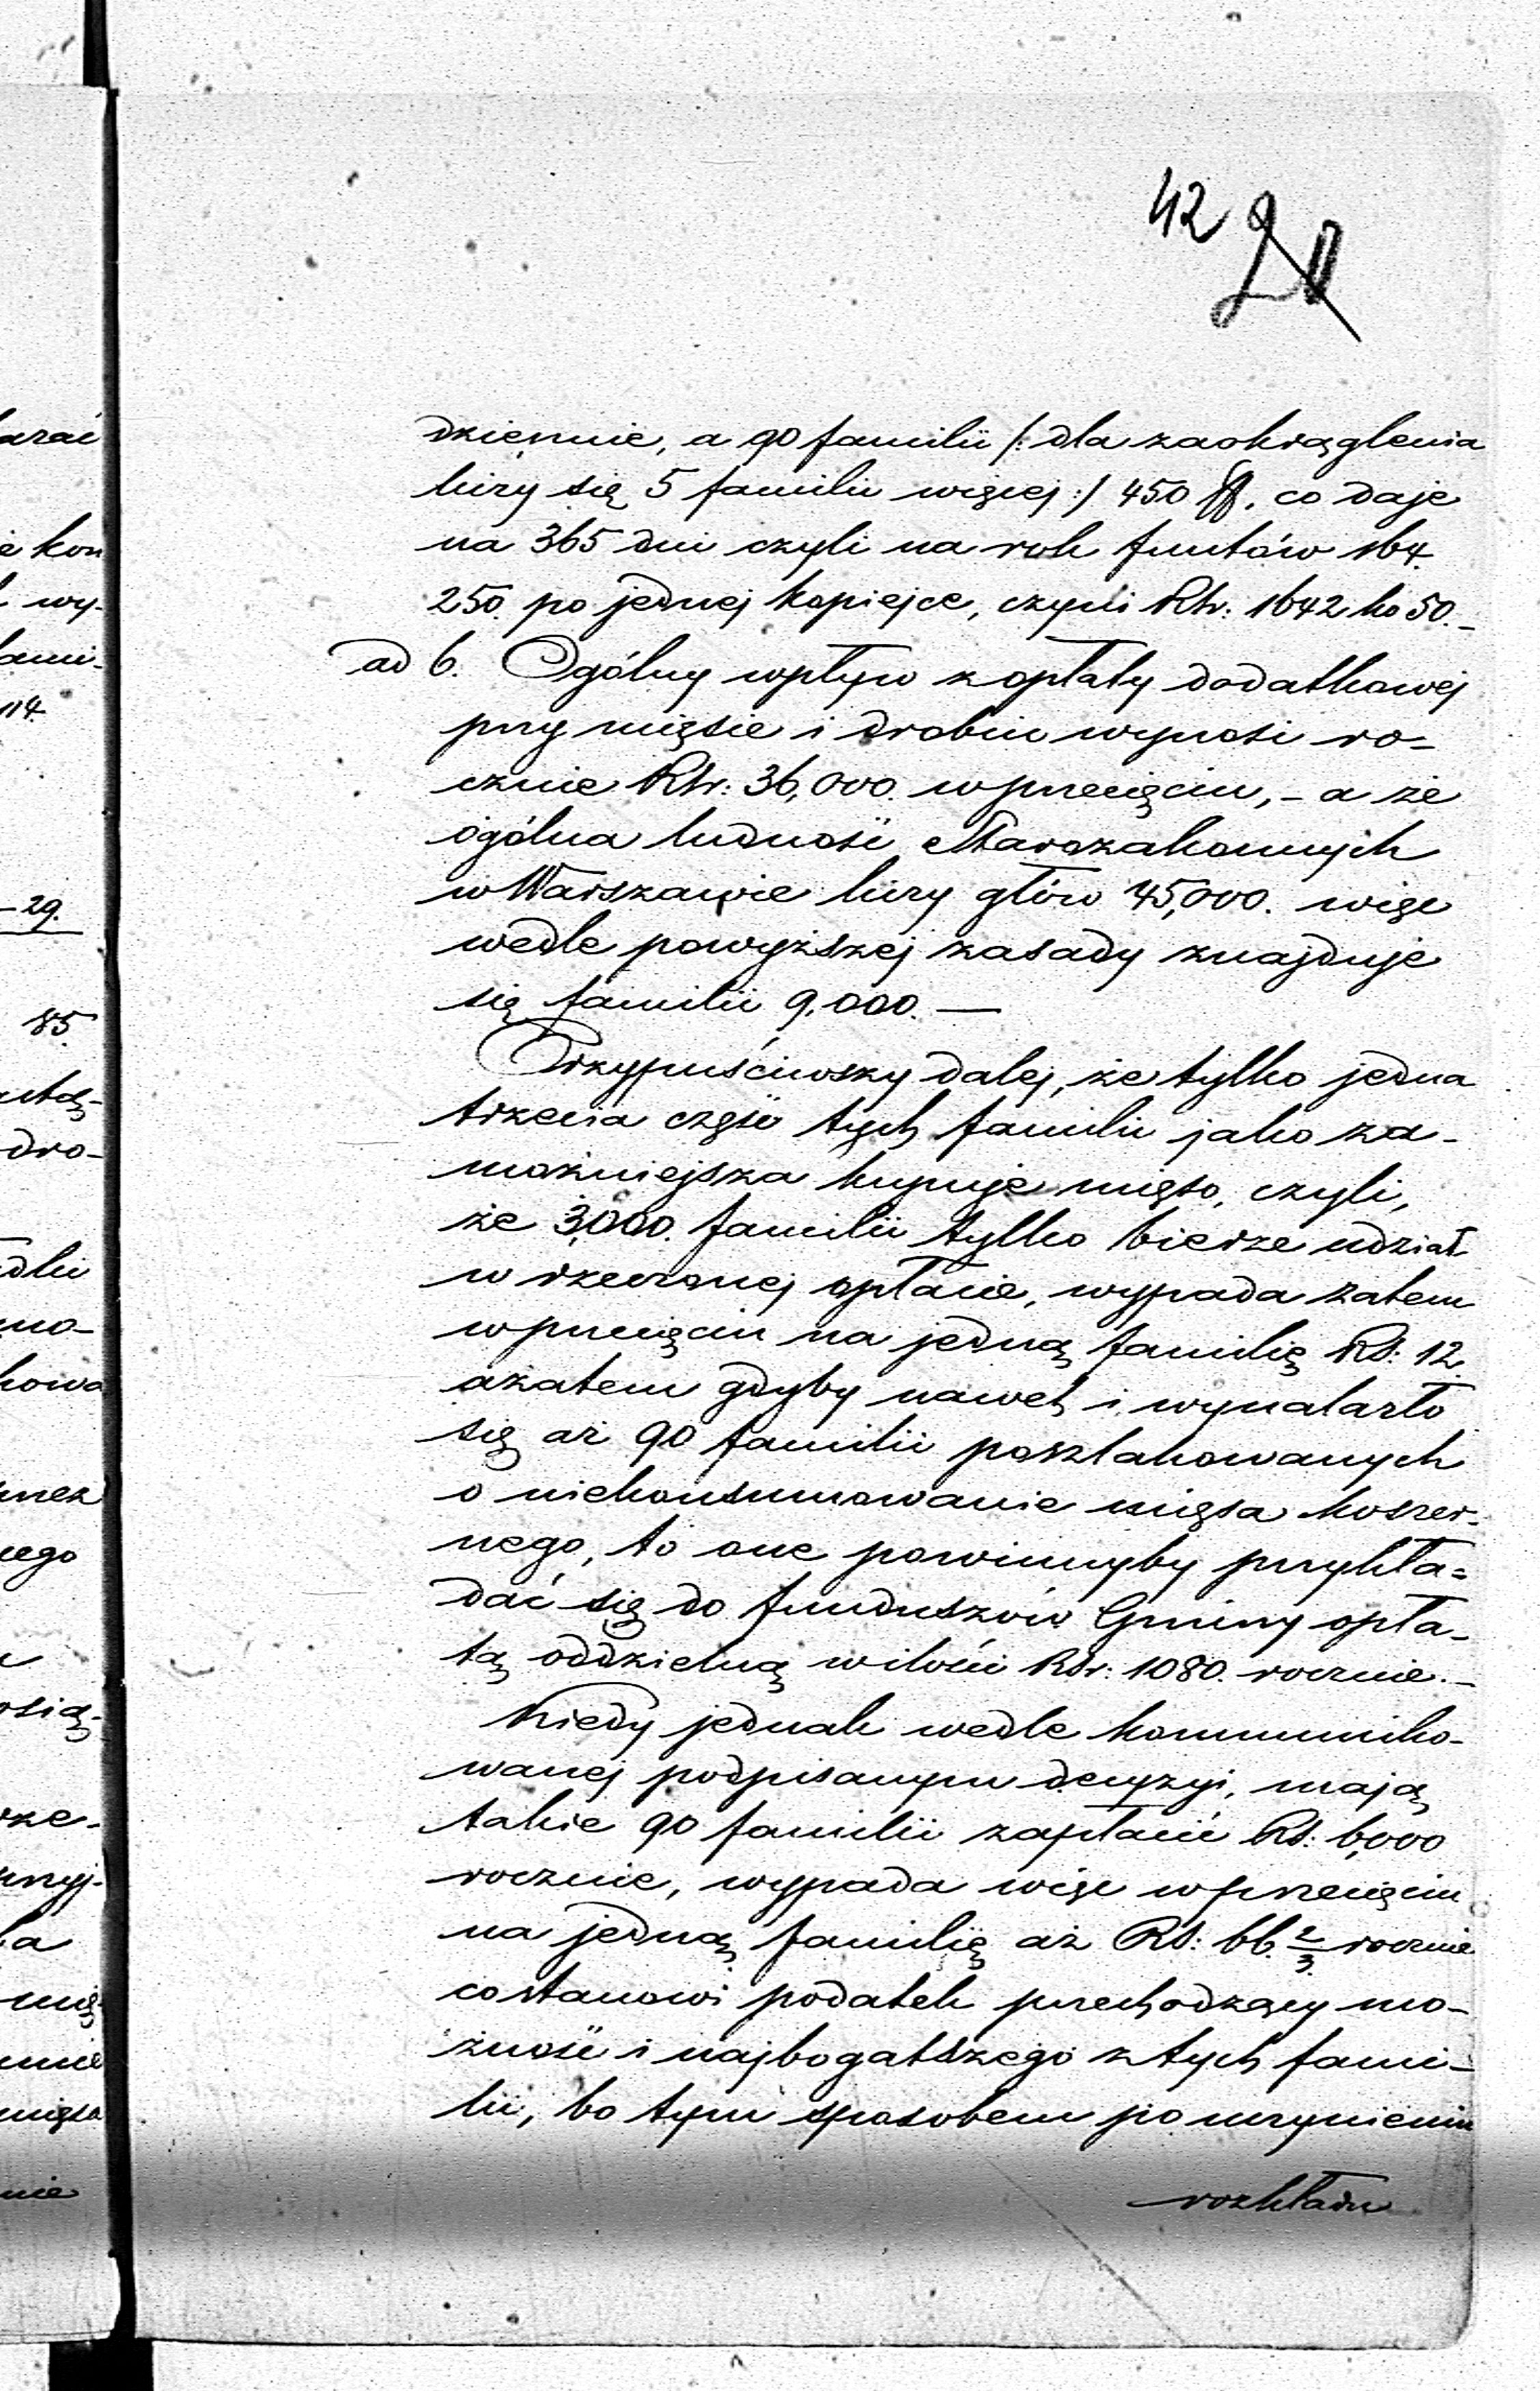 42 20
dziennie, a 90 familii /: dla zaokrąglenia
liczy się 5 familii więcej :/ 450 ℔. co daje
na 365 dni czyli na rok funtów 164.
250. po jednej kopiejce, czyni Rsr: 1642 ko 50. _
ad 6. Ogólny wpływ z opłaty dodatkowej
przy mięsie i drobiu wynosi ro-
cznie Rsr: 36,000. w przecięciu, - a że
ogólna ludność Starozakonnych
w Warszawie liczy głów 45,000. więc
wedle powyższej zasady znajduje
się familii 9,000. —
Przypuściwszy dalej, że tylko jedna
trzecia część tych familii jako za-
możniejsza kupuje mięso, czyli,
że 3,000. familii tylko bierze udział
w rzeczonej opłacie, wypada zatem
w przecięciu na jedną familię RS: 12.
azatem gdyby nawet i wynalazło
się aż 90 familii poszlakowanych
o niekonsumowanie mięsa koszer-
nego, to one powinnyby przykła=
dać się do funduszów Gminy opła-
tą oddzielną w ilości Rsr: 1080. rocznie. _
Kiedy jednak wedle kommuniko-
wanej podpisanym decyzyi, mają
takie 90 familii zapłacić RS: 6,000
rocznie, wypada więc w przecięciu
na jedną familię aż RS: 66. 2/3. rocznie
co stanowi podatek przechodzący mo-
żność i najbogatszego z tych fami-
lii, bo tym sposobem po uczynieniu
rozkładu
arać
e kon
wy-
fami-
114.
- 29.
85.
dro-
mo-
kowa
cego
osią-
rze-
przyj-
a
mię-
mięsa
nie